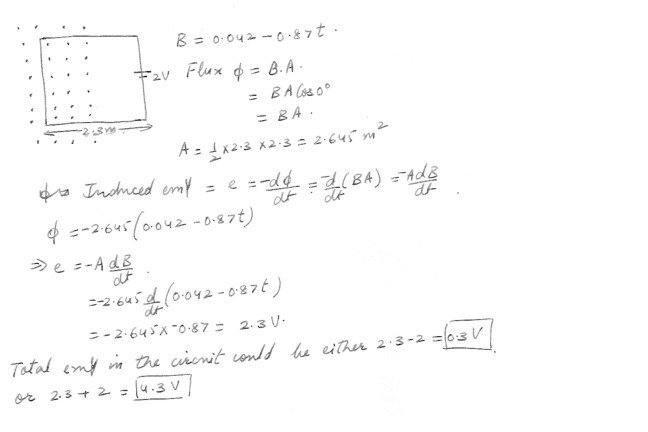 B = 0.042 - 0.87t.
2V
Flux ϕ = B.A.
= BA Cos 0°
= BA.
2.3m
A = 1/2 x 2.3 x 2.3 = 2.645 m²
Induced emf = e = -dϕ/dt = -d/dt (BA) = -A dB/dt.
ϕ = -2.645 (0.042 - 0.87t)
⇒ e = -A dB/dt.
= -2.645 d/dt (0.042 - 0.87t)
= -2.645 x -0.87 = 2.3 V.
Total emf in the circuit could be either 2.3 - 2 = 0.3 V.
or 2.3 + 2 = 4.3 V